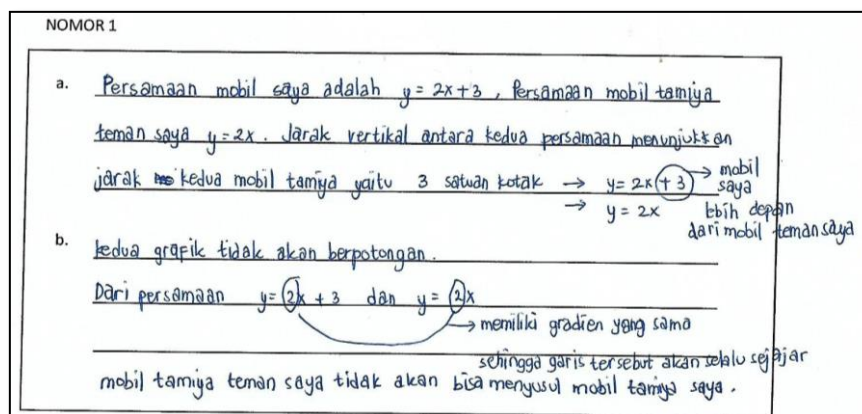 NOMOR 1
a. Persamaan mobil saya adalah y = 2x + 3, Persamaan mobil tamiya
teman saya y = 2x. Jarak vertikal antara kedua persamaan menunjukkan
jarak kedua mobil tamiya yaitu 3 satuan kotak → y = 2x + 3 → mobil saya
→ y = 2x lebih depan
dari mobil teman saya
b. kedua grafik tidak akan berpotongan.
Dari persamaan y = 2x + 3 dan y = 2x
→ memiliki gradien yang sama
sehingga garis tersebut akan selalu sejajar
mobil tamiya teman saya tidak akan bisa menyusul mobil tamiya saya.